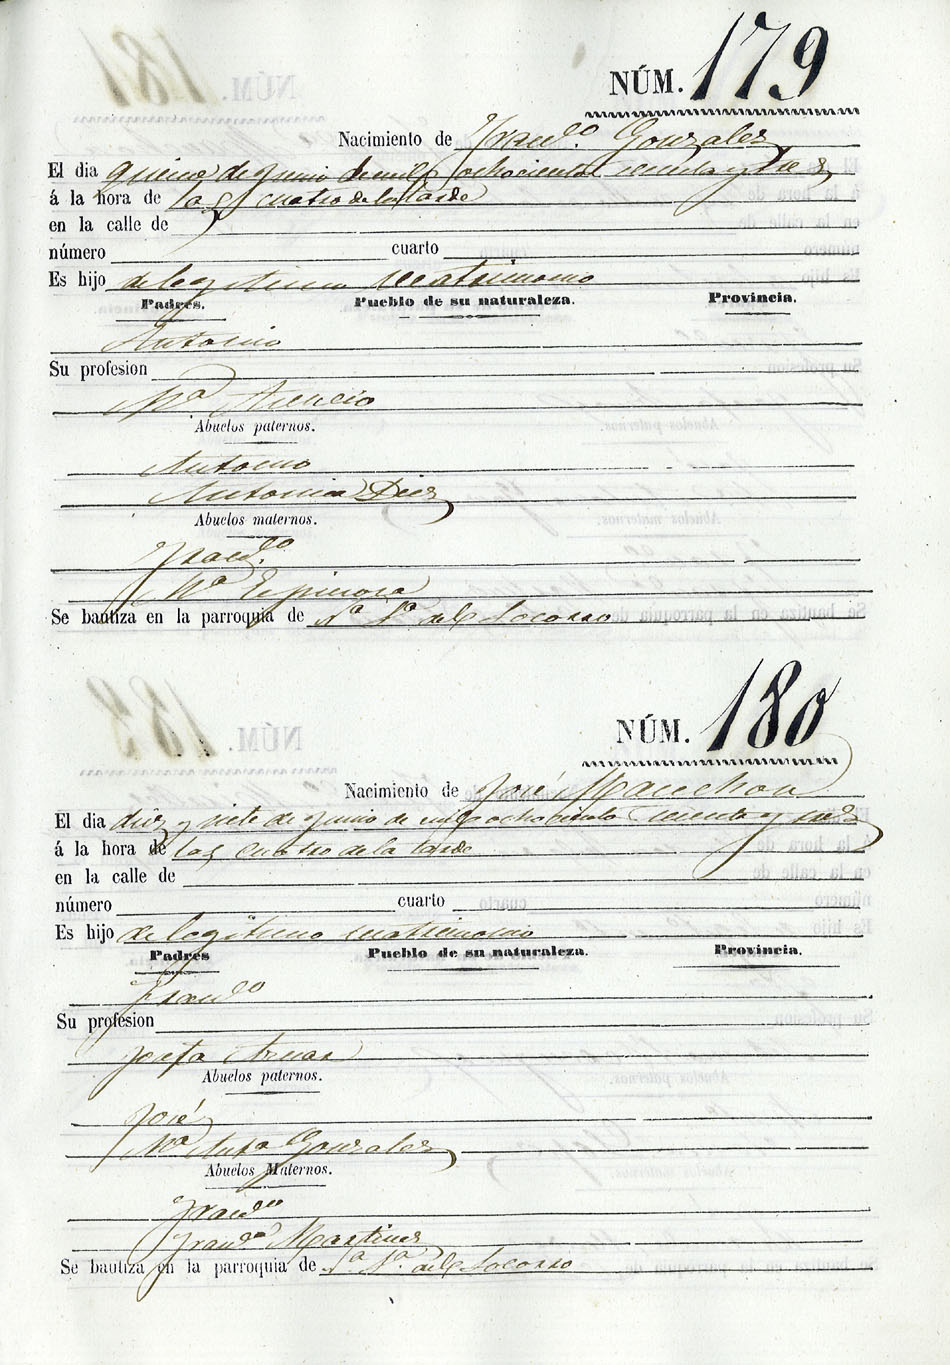 NÚM. 179
Nacimiento de Francº. Gonzalez
El dia quince de Junio de mil ochocientos secenta y tres
á la hora de las cuatro de la tarde
en la calle de
número cuarto
Es hijo de legitimo matrimonio
Padres. Pueblo de su naturaleza. Provincia.
Antonio
Su profesion
Mª Asencio
Abuelos paternos.
Antonio
Antonia Diez
Abuelos maternos.
Francº.
Mª Espinosa
Se bautiza en la parroquia de Nª Sª del Socorro
NÚM. 180
Nacimiento de José Manchon
El dia diez y siete de Junio de mil ochociento secenta y tres
á la hora de las cuatro de la tarde
en la calle de
número cuarto
Es hijo de legitimo matrimonio
Padres Pueblo de su naturaleza. Provincia.
Francº
Su profesion
Josefa Aznar
Abuelos paternos.
José
Mª Antª Gonzalez
Abuelos Maternos.
Francº
Francª Martinez
Se bautiza en la parroquia de Nª Sª. del Socorro